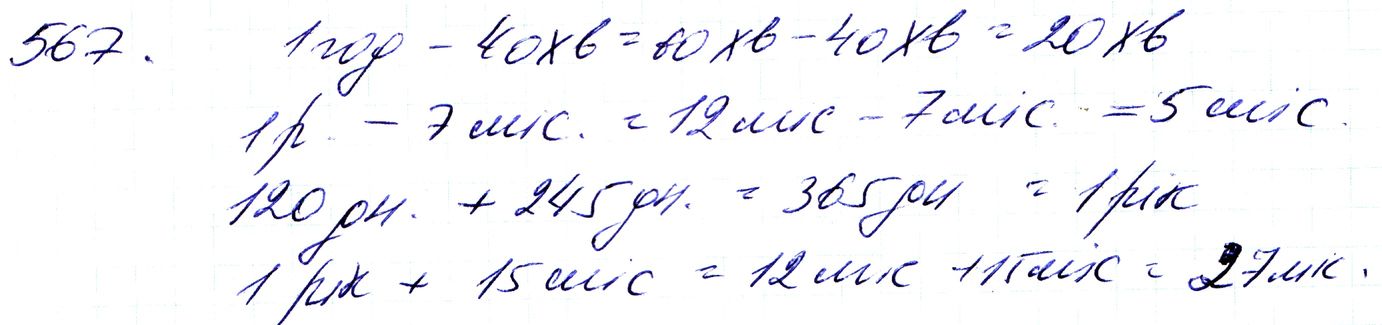 567. 1 год - 40 хв = 60 хв - 40 хв = 20 хв
1 р. - 7 міс. = 12 міс - 7 міс. = 5 міс.
120 дн. + 245 дн. = 365 дн = 1 рік
1 рік + 15 міс = 12 міс + 15 міс = 27 міс.